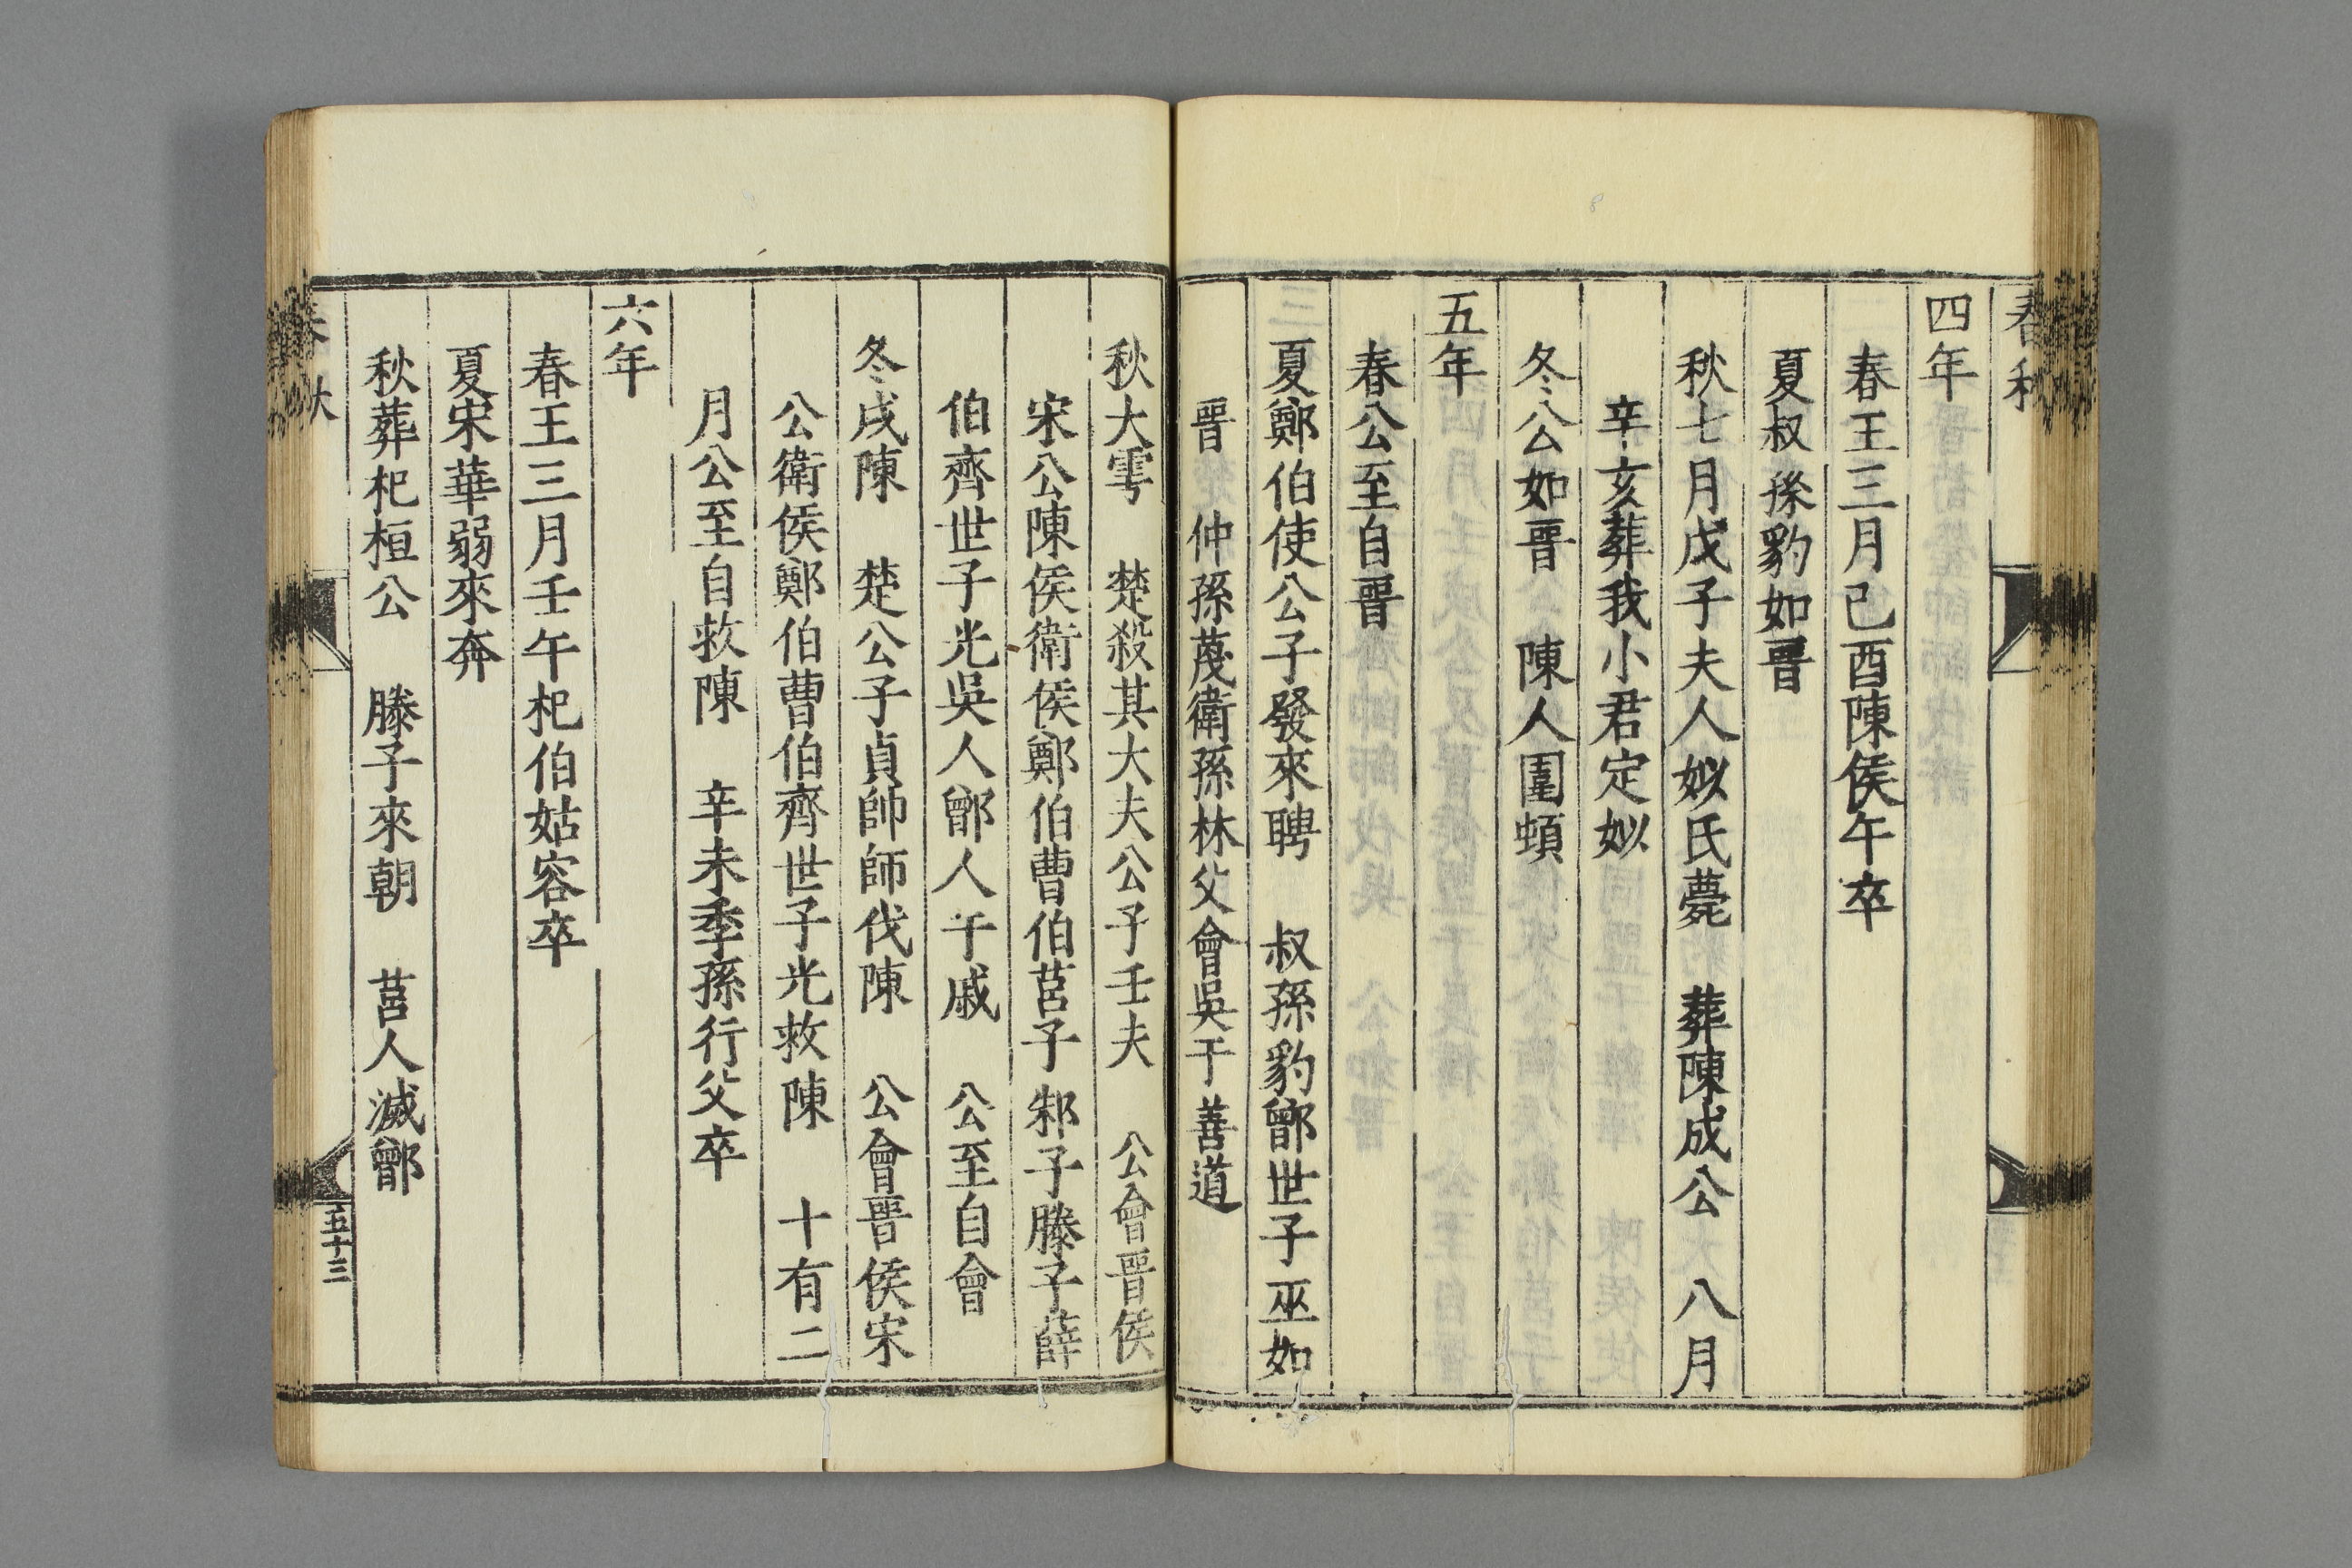 四年
春王三月己酉陳侯午卒
夏叔孫豹如晉
秋七月戊子夫人姒氏薨　葬陳成公　八月
辛亥葬我小君定姒
冬公如晉　陳人圍頓
五年
春公至自晉
夏鄭伯使公子發來聘　叔孫豹鄫世子巫如
晉　仲孫蔑衛孫林父會吳于善道
秋大雩　楚殺其大夫公子壬夫　公會晉侯
宋公陳侯衛侯鄭伯曹伯莒子邾子滕子薛
伯齊世子光吳人鄫人于戚　公至自會
冬戍陳　楚公子貞帥師伐陳　公會晉侯宋
公衛侯鄭伯曹伯齊世子光救陳　十有二
月公至自救陳　辛未季孫行父卒
六年
春王三月壬午杞伯姑容卒
夏宋華弱來奔
秋葬杞桓公　滕子來朝　莒人滅鄫
五十三